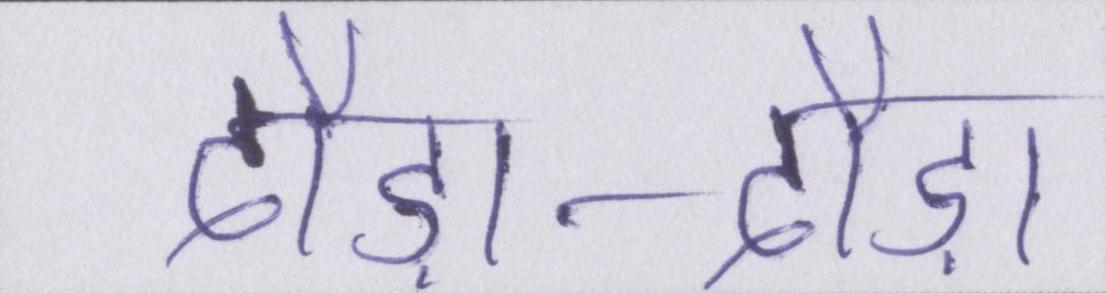 दौड़ा-दौड़ा